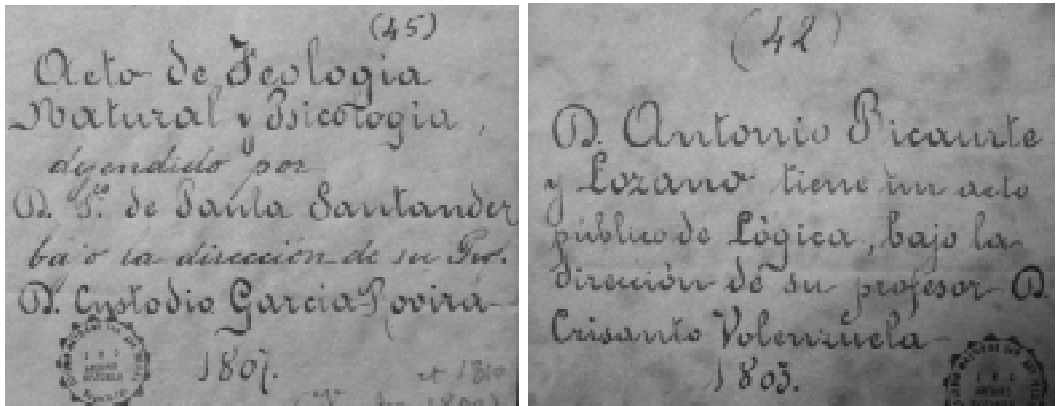 (45)
Acto de Teologia
Natural y Psicologia,
defendido por
D. F.co de Paula Santander
bajo la dirección de su Pror.
D. Custodio García Rovira
1807.
(42)
D. Antonio Ricaurte
y Lozano tiene un acto
público de Lógica, bajo la
dirección de su profesor D.
Crisanto Valenzuela
1803.